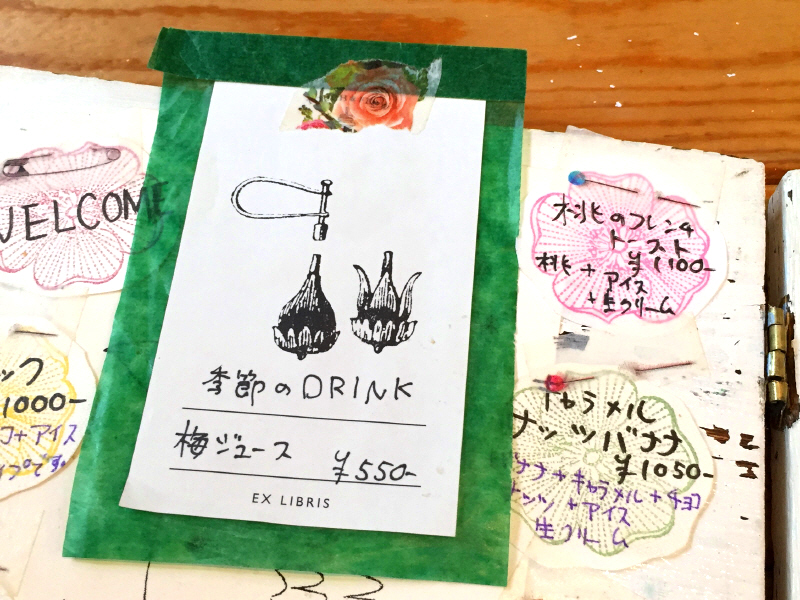 WELCOME
季節のDRINK
梅ジュース
¥550-
EX LIBRIS
桃のフレンチ
トースト
¥1100-
桃+
アイス
+生クリーム
キャラメル
ナッツバナナ
¥1050-
バナナ+キャラメル+チョコ
ナッツ+アイス
生クリーム
ップ
1000-
コ+アイス
プです。